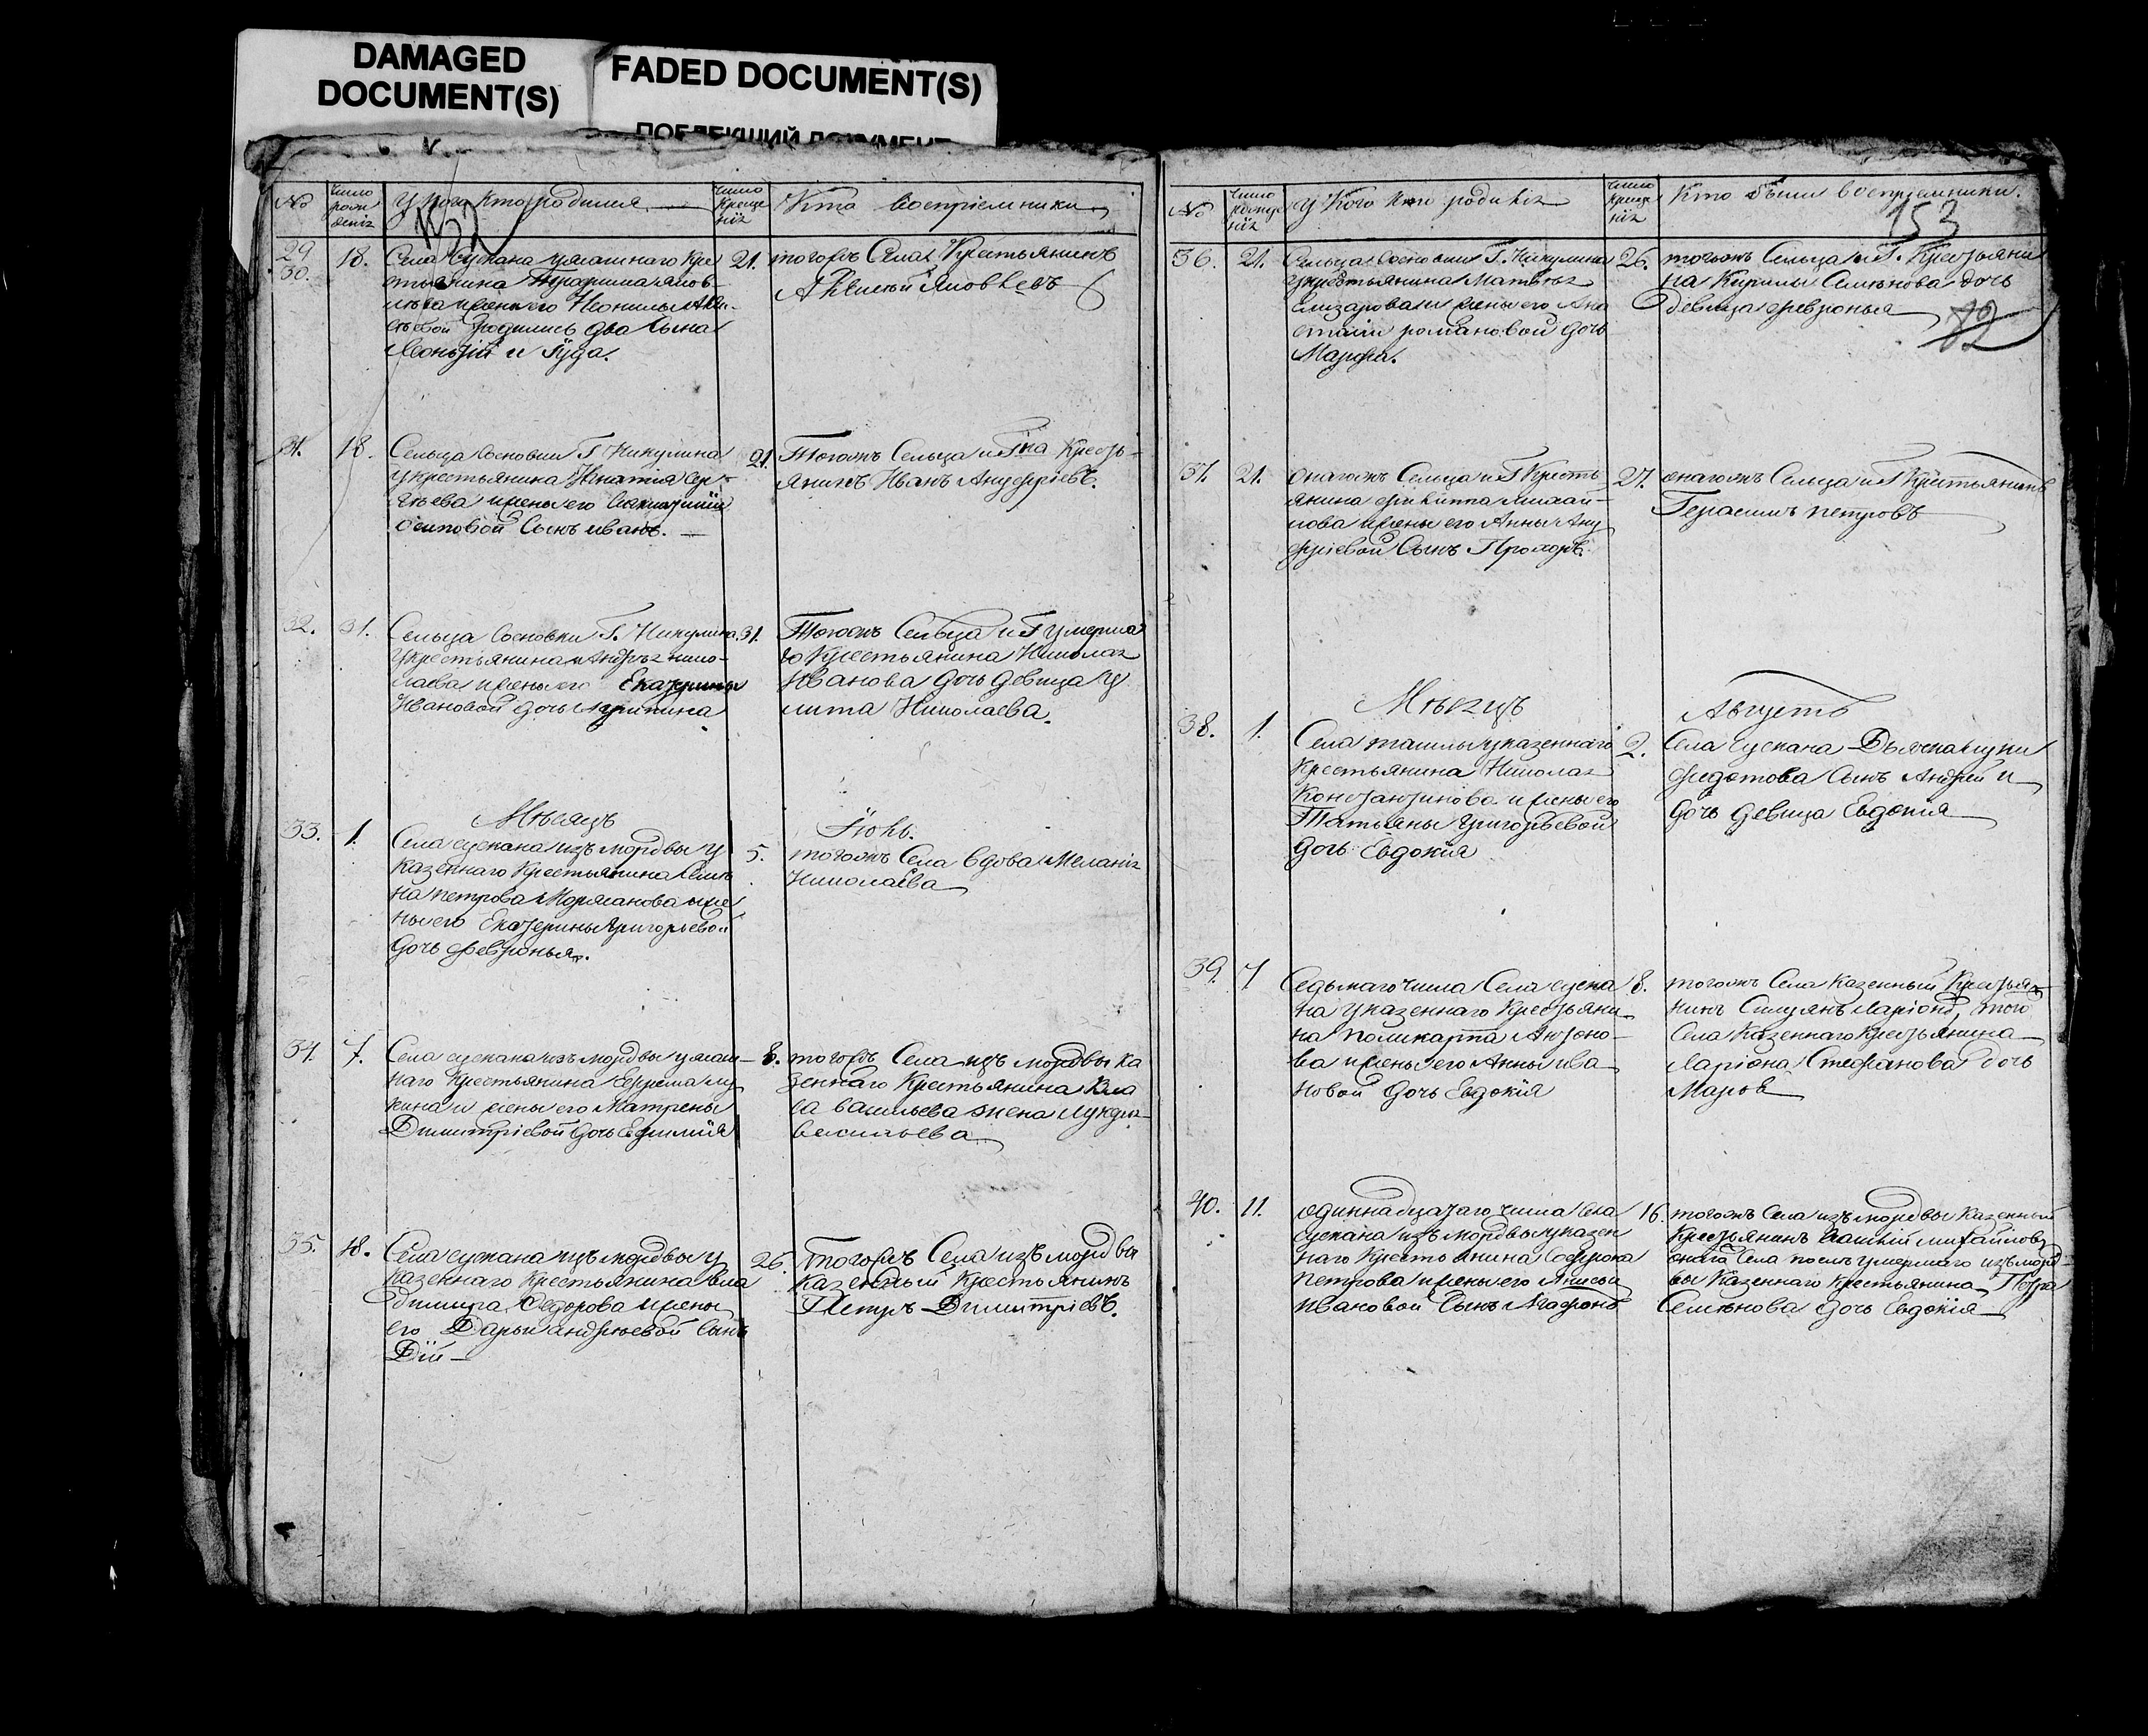 DAMAGED
DOCUMENT(S)
FADED DOCUMENT(S)
№
число рожденія
у кого кто родился
число крещенія
Кто воспріемники
29
30.
18.
Села Сускана у ямашнаго кре
стьянина Трофима яков
лева и жены его Неонилы Але
ѣевой родились два сына
Леонтій и Іуда.
21.
тогожъ Села Крестьянинъ
Алексѣй Яковлевъ
31.
18.
Сельца Сосновки Г. Никулина
у крестьянина Игнатія Сер
гѣева и жены его
Осиповой Сынъ иванъ.
21.
Тогожъ Сельца и Гна Кресть
янинъ Иванъ Ануфріевъ.
32.
31.
Сельца Сосновки Г. Никулина
у крестьянина Андрея нико
лаева и жены его Екатерины
Ивановой дочь Акулина
31.
Тогожъ Сельца и Г умерша
го Крестьянина Николая
Иванова дочь девица У
лита Николаева.
Мѣсяцъ
Іюль.
33.
1.
Села сускана изъ мордвы у
казеннаго Крестьянина Семе
на петрова и же
ны его Екатерины Григорьевой
дочь Февронья.
5.
тогожъ Села вдова Меланія
Николаева
34.
7.
Села сускана изъ мордвы у
наго Крестьянина Ефрема лу
кина и жены его Матрены
Димитріевой дочь Ефимія
8.
тогожъ Села изъ мордвы ка
зеннаго Крестьянина Вла
са васильева жена Лукерья
васильева
35.
18.
Села сускана изъ мордвы у
казеннаго Крестьянина Вла
димира Федорова и жены
его Дарьи андреевой Сынъ
Дій
26.
тогожъ Села изъ мордвы
казенный Крестьянинъ
Петръ Димитріевъ.
153
№
число рожденія
у Кого кто родился
число крещенія
Кто были воспріемники.
36.
21.
Сельца Сосновки Г. Никулина
у крестьянина Матвѣя
Елизарова и жены его Ана
стасіи романовой дочь
Марфа.
26.
тогожъ Сельца и Г. Крестьяни
на Кирилы Семенова дочь
девица февронья
37.
21.
онагожъ Сельца и Г Кресть
янина филиппа михай
лова и жены его Анны Ану
фріевой Сынъ Прохоръ.
27.
онагожъ Сельца и Г Крестьянинъ
Герасимъ петровъ
Мѣсяцъ
Августъ
38.
1.
Села ташлы у казеннаго
Крестьянина Николая
Константинова и жены его
Татьяны Григорьевой
дочь Евдокія
2.
Села Сускана Дьячка луки
федотова Сынъ Андрей и
дочь девица Евдокія
39.
7.
Седьмаго числа Села суска
на у казеннаго Крестьяни
на поликарпа Антоно
ва и жены его Анны ива
новой дочь Евдокія
8.
тогожъ Села Казенный Крестья
нинъ Симеонъ Ларіоновъ, того
Села Казеннаго Крестьянина
Ларіона Стефанова дочь
Марфа
40.
11.
одиннадцатаго числа Села
сускана изъ мордвы у казен
наго Крестьянина Софрона
петрова и жены его Анисьи
ивановой Сынъ Агафонъ
16.
тогожъ Села изъ мордвы казенный
Крестьянинъ михайловъ
онаго Села послѣ умершаго изъ морд
вы Казеннаго Крестьянина Петра
Семенова дочь Евдокія